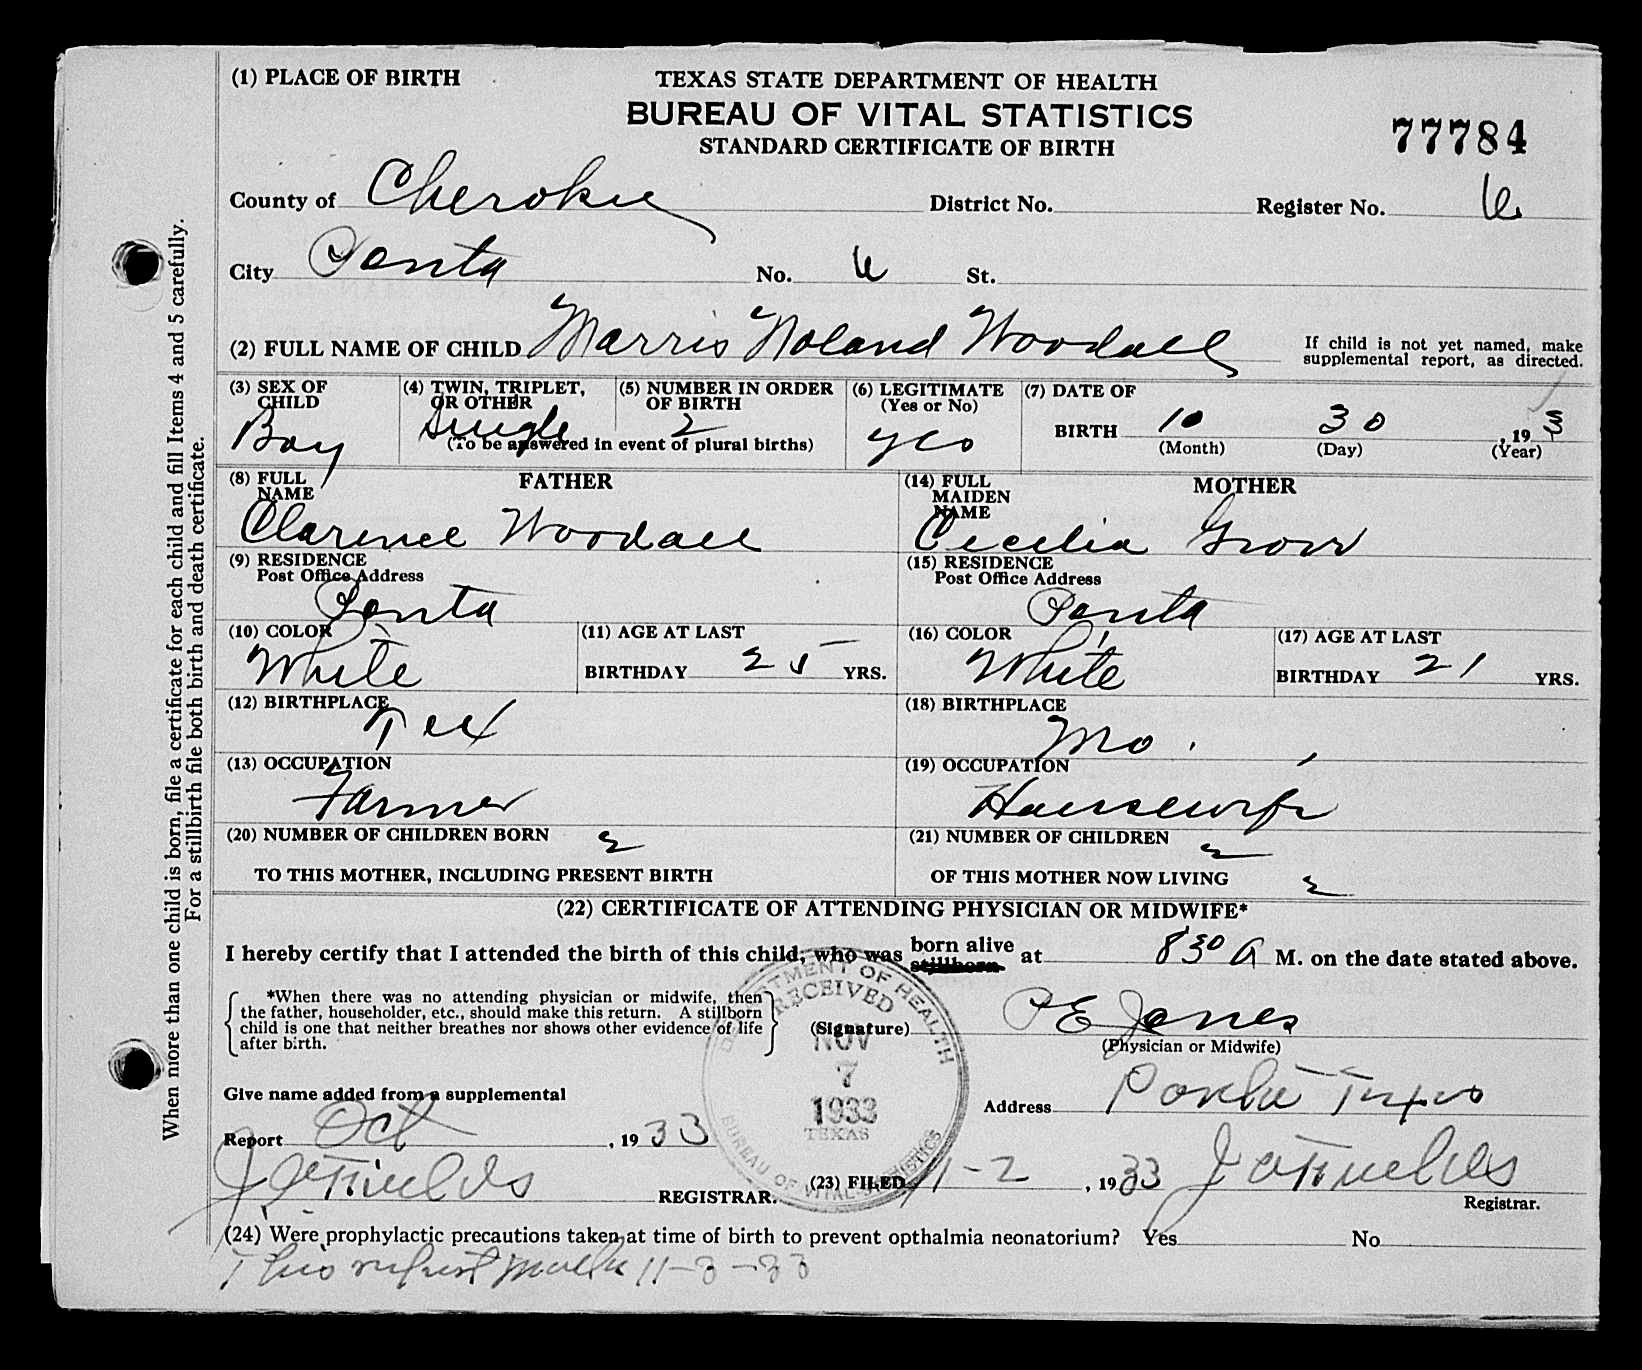 (1) PLACE OF BIRTH
TEXAS STATE DEPARTMENT OF HEALTH
BUREAU OF VITAL STATISTICS
STANDARD CERTIFICATE OF BIRTH
77784
County of Cherokee District No. Register No. 6
City Ponta No. 6 St.
(2) FULL NAME OF CHILD Marris Noland Woodall If child is not yet named, make supplemental report, as directed.
(3) SEX OF CHILD Boy
(4) TWIN, TRIPLET, OR OTHER Single
(5) NUMBER IN ORDER OF BIRTH 2
(To be answered in event of plural births)
(6) LEGITIMATE (Yes or No) yes
(7) DATE OF BIRTH 10 30 , 1933
(Month) (Day) (Year)
FATHER
(8) FULL NAME Clarence Woodall
(9) RESIDENCE Post Office Address Ponta
(10) COLOR White
(11) AGE AT LAST BIRTHDAY 25 YRS.
(12) BIRTHPLACE Tex
(13) OCCUPATION Farmer
MOTHER
(14) FULL MAIDEN NAME Cecelia
(15) RESIDENCE Post Office Address Ponta
(16) COLOR White
(17) AGE AT LAST BIRTHDAY 21 YRS.
(18) BIRTHPLACE Mo.
(19) OCCUPATION Housewife
(20) NUMBER OF CHILDREN BORN 2
TO THIS MOTHER, INCLUDING PRESENT BIRTH
(21) NUMBER OF CHILDREN 2
OF THIS MOTHER NOW LIVING 2
(22) CERTIFICATE OF ATTENDING PHYSICIAN OR MIDWIFE*
I hereby certify that I attended the birth of this child, who was born alive stillborn at 8 30 A M. on the date stated above.
*When there was no attending physician or midwife, then
the father, householder, etc., should make this return. A stillborn
child is one that neither breathes nor shows other evidence of life
after birth.
(Signature) P E Jones
(Physician or Midwife)
DEPARTMENT OF HEALTH
RECEIVED
NOV
7
1933
TEXAS
BUREAU OF VITAL STATISTICS
Give name added from a supplemental
Address Ponta Texas
Report Oct , 1933
REGISTRAR.
(23) FILED 11-2 , 1933
Registrar.
(24) Were prophylactic precautions taken at time of birth to prevent opthalmia neonatorium? Yes No
This report 11-3-33
When more than one child is born, file a certificate for each child and fill Items 4 and 5 carefully.
For a stillbirth file both birth and death certificate.